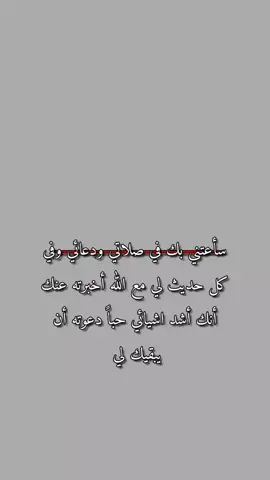 سأعتني بك في صلاتي ودعائي وفي
كل حديث لي مع الله أخبرته عنك
أنك أشد اشيائي حباً دعوته أن
يبقيك لي